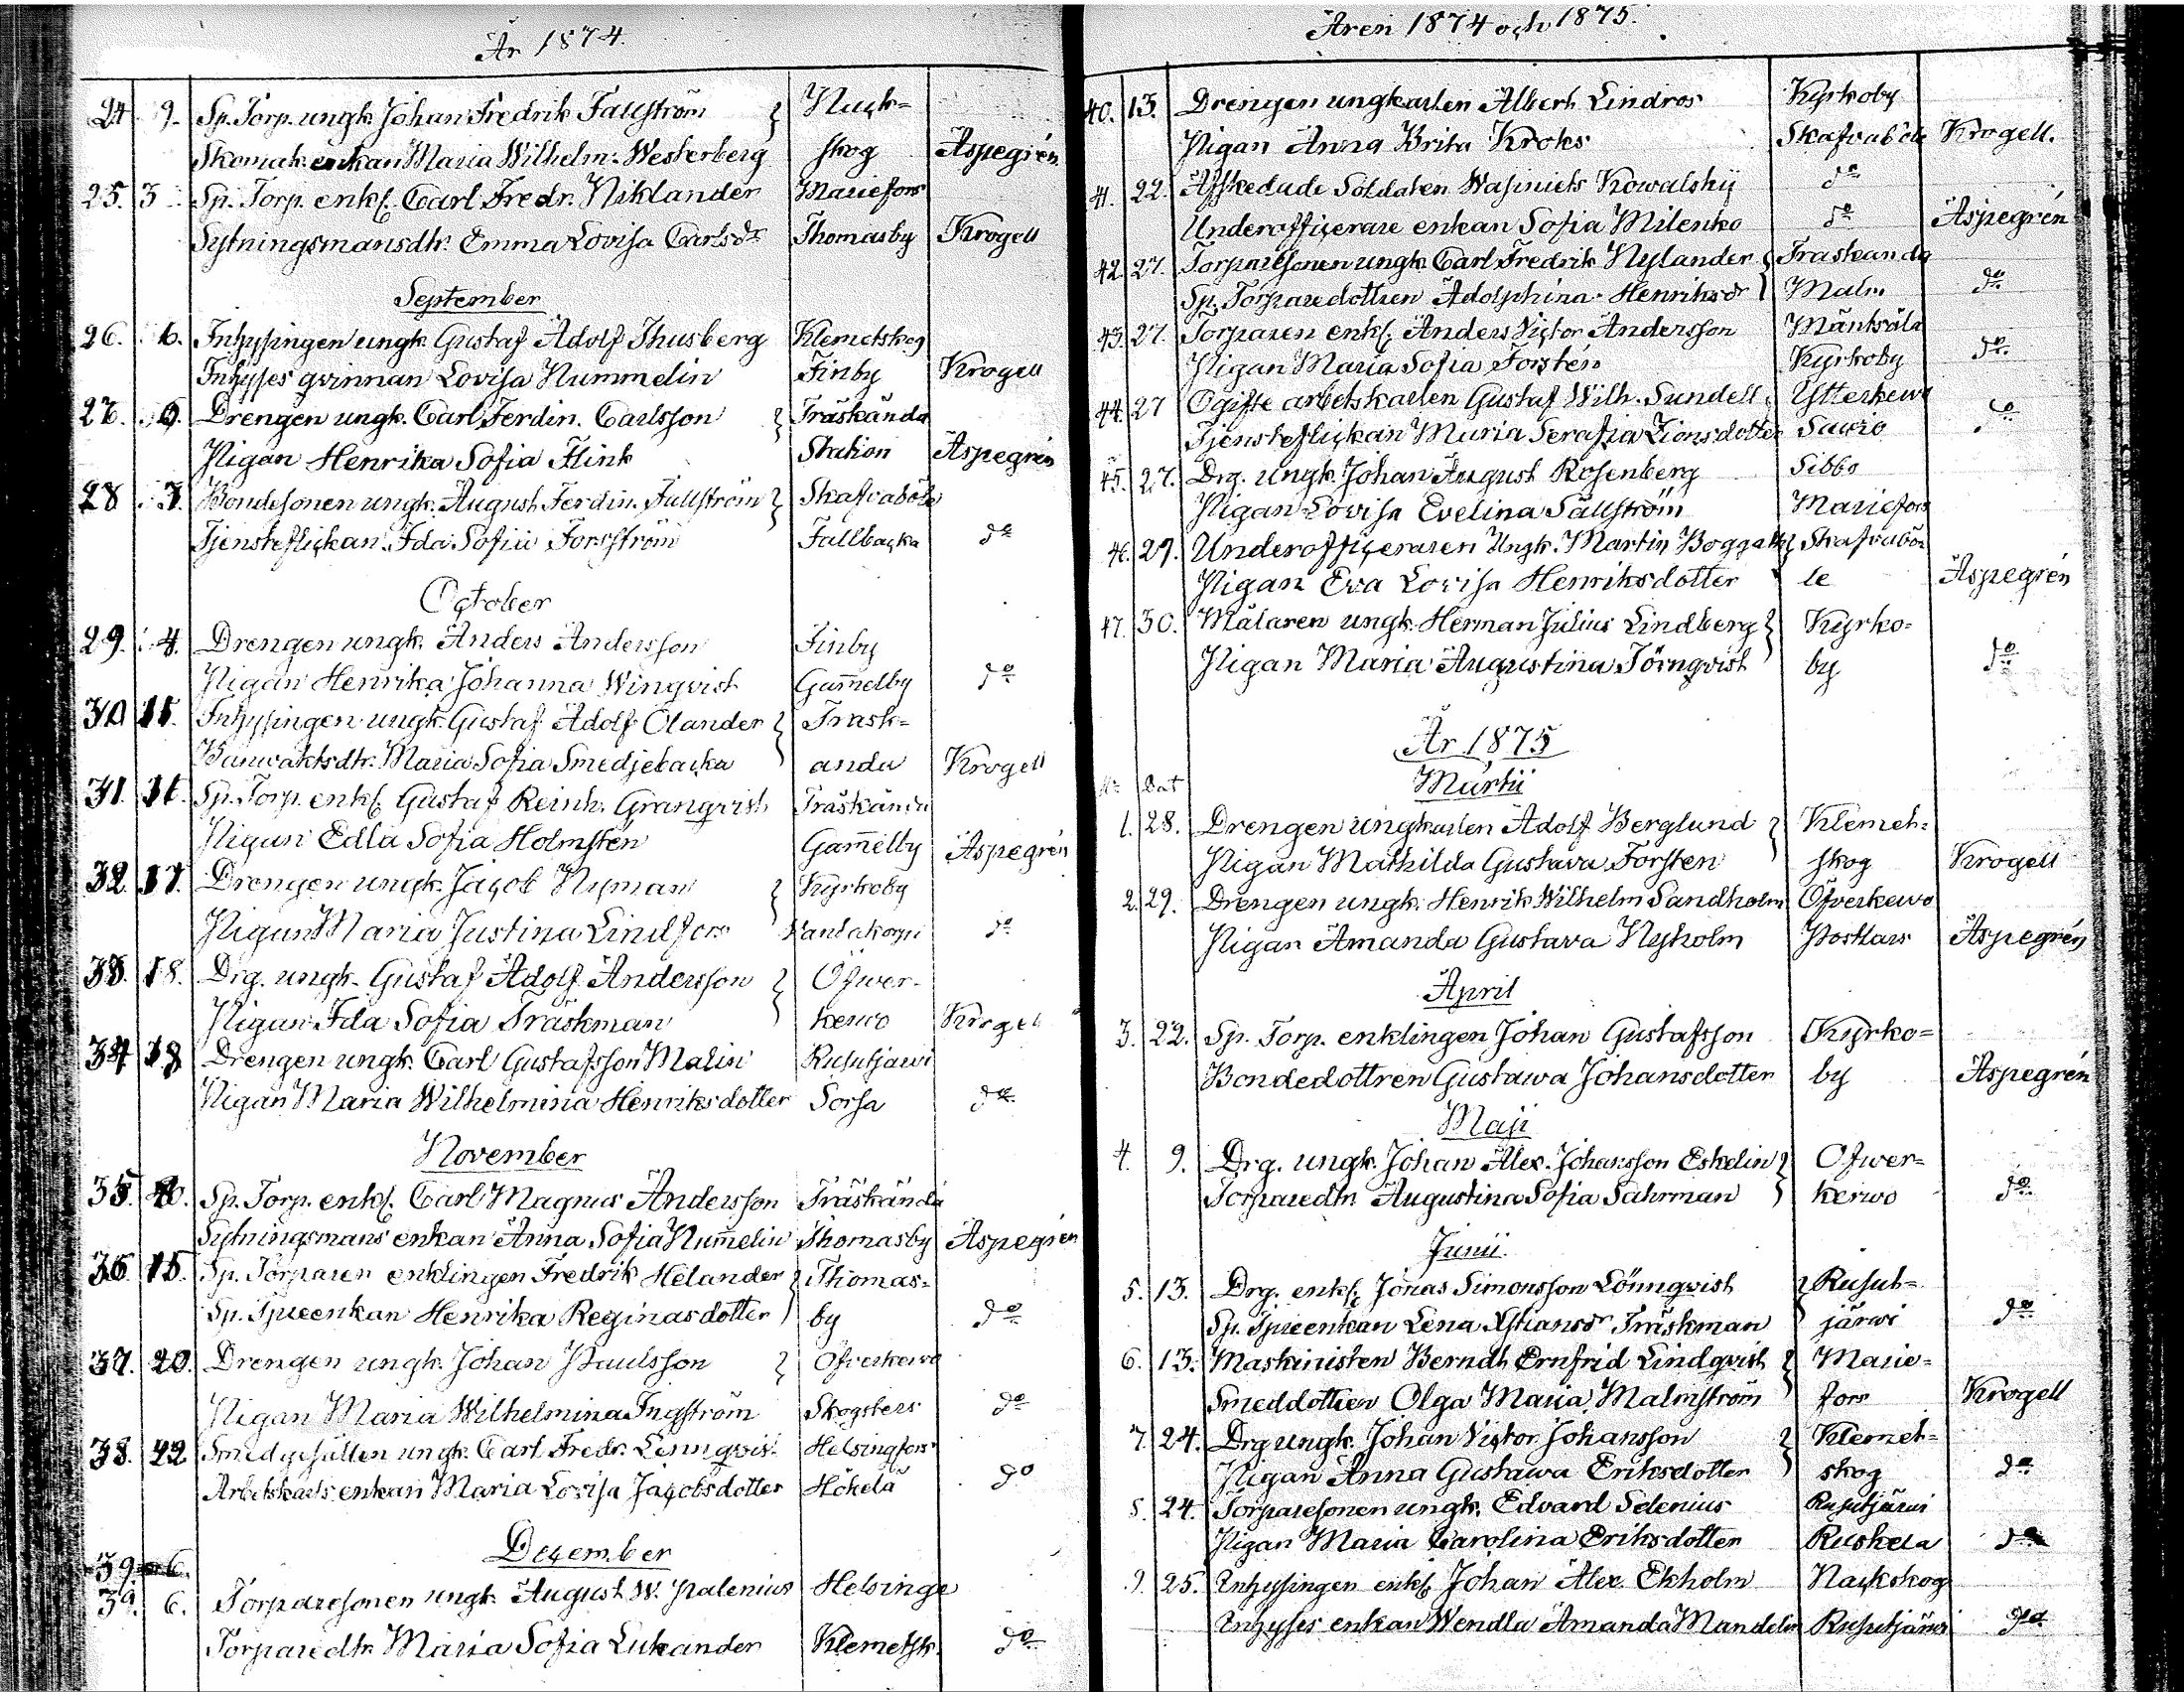 År 1874.
24 9. Sp. Torp. ungk. Johan Fredrik Fallström } Nack=
Skomak. enkan Maria Wilhelm. Westerberg skog Aspegrén
25. 3 Sp. Torp. enkl. Carl Fredr. Niklander Mariefors
Sytningsmansdtr. Emma Lovisa Carlsdr Thomasby Krogell
September
26. 6. Inhysingen ungk. Gustaf Adolf Thusberg Klemetskog
Inhyses qvinnan Lovisa Nummelin Finby Krogell
27. 6. Drengen ungk. Carl Ferdin. Carlsson } Träskända
Pigan Henrika Sofia Flink Station Aspegrén
28 Bondesonen ungk. August Ferdin. Fallström } Skafvaböle
Tjensteflickan Ida Sofia Forsström Fallbacka do
October
29. 4. Drengen ungk. Anders Andersson Finby
Pigan Henrika Johanna Winqvist Gam̄elby do
30 11. Inhysingen ungk. Gustaf Adolf Olander } Träsk=
Banvaktsdtr. Maria Sofia Smedjebacka anda Krogell
31. 11. Sp. Torp. enkl. Gustaf Reinh. Granqvist Träskända
Pigan Edla Sofia Holmstén Gam̄elby Aspegrén
32. 17. Drengen ungk. Jacob Nyman } Kyrkoby
Pigan Maria Justina Lindfors do
33. 18. Drg. ungk. Gustaf Adolf Andersson } Öfwer-
Pigan Ida Sofia Träskman kerwo Krogell
34 18 Drengen ungk. Carl Gustafsson Malin Rusutjärwi
Pigan Maria Wilhelmina Henriksdotter Sorsa do
November
35. Sp. Torp. enkl. Carl Magnus Andersson Träskända
Sytningsmans enkan Anna Sofia Num̄elin Thomasby Aspegrén
36. 15. Sp. Torparen enklingen Fredrik Helander } Thomas=
Sp. Spieenkan Henrika Reginasdotter by do
37. 20. Drengen ungk. Johan Paulsson } Öfverkerwo
Pigan Maria Wilhelmina Ingström Skogsters do
38. 22 Smedgesällen ungk. Carl Fredr. Lennqvist Helsingfors
Arbetskarls enkan Maria Lovisa Jacobsdotter Hökelä do
December
39. 6.
39. 6. Torparesonen ungk. August W. Palenius Helsinge
Torparedtr. Maria Sofia Lukander Klemetsk. do
Åren 1874 och 1875.
40. 13. Drengen ungkarlen Albert Lindros Kyrkoby
Pigan Anna Brita Kroks Skafvaböle Krogell.
41. 22. Afskedade Soldaten Wasiniets Kowalskij do
Underofficerare enkan Sofia Milenko do Aspegrén
42. 27. Torparesonen ungk. Carl Fredrik Nylander { Träskanda
Sp. Torparedottren Adolphina Henriksdr Malm do
43. 27. Torparen enkl. Anders Victor Andersson Mäntsälä
Pigan Maria Sofia Forstén Kyrkoby do
44. 27 Ogifte arbetskarlen Gustaf Wilh. Sundell Ytterkerwo
Tjensteflickan Maria Serafia Zionsdotter Sawio do
45. 27. Drg. ungk. Johan August Rosenberg Sibbo
Pigan Lovisa Evelina Sällström Mariefors
46. 27. Underofficeraren Ungk. Martin } Skafvabö=
Pigan Eva Lovisa Henriksdotter le Aspegrén
47. 30. Målaren ungk. Herman Julius Lindberg } Kyrko=
Pigan Maria Augustina Törnqvist by do
År 1875
No Dat Martii
1. 28. Drengen ungkarlen Adolf Berglund } Klemet=
Pigan Mathilda Gustava Forsten skog Krogell
2. 29. Drengen ungk. Henrik Wilhelm Sandholm Öfverkerwo
Pigan Amanda Gustava Nyholm Postlars Aspegrén
April
3. 22. Sp. Torp. enklingen Johan Gustafsson Kyrko=
Bondedottren Gustawa Johansdotter by Aspegrén
Maji
4. 9. Drg. ungk. Johan Alex. Johansson Eskelin } Öfwer=
Torparedtr. Augustina Sofia Sahrman kerwo do
Junii.
5. 13. Drg. enkl. Jonas Simonsson Lönnqvist } Rusut=
Sp. Spieenkan Lena Xstiansdr Träskman järwi do
6. 13. Maskinisten Berndt Ernfrid Lindqvist } Marie=
Smeddottren Olga Maria Malmström fors Krogell
7. 24. Drg ungk. Johan Victor Johansson } Klemet=
Pigan Anna Gustawa Eriksdotter skog do
8. 24. Torparesonen ungk. Edvard Selenius Rusutjärwi
Pigan Maria Carolina Eriksdotter Ruskela do
9. 25. Inhysingen enkl. Johan Alex. Ekholm Nackskog
Inhyses enkan Wendla Amanda Mandelin Rusutjärwi do